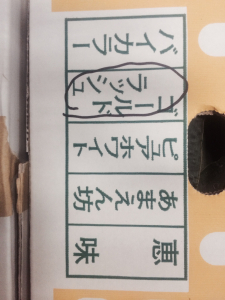 恵味
あまえん坊
ピュアホワイト
ゴールド
ラッシュ
バイカラー